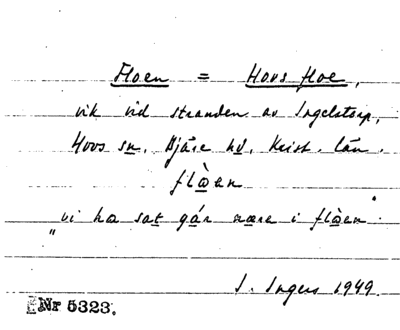 Floen = Hovs floe,
vik vid stranden av Ingelstorp,
Hovs sn, Bjäre hd, Krist. län.
flὰen
"vi ha sat gάr nære i flὰen".
I. Ingers 1949.
Nr 5323.